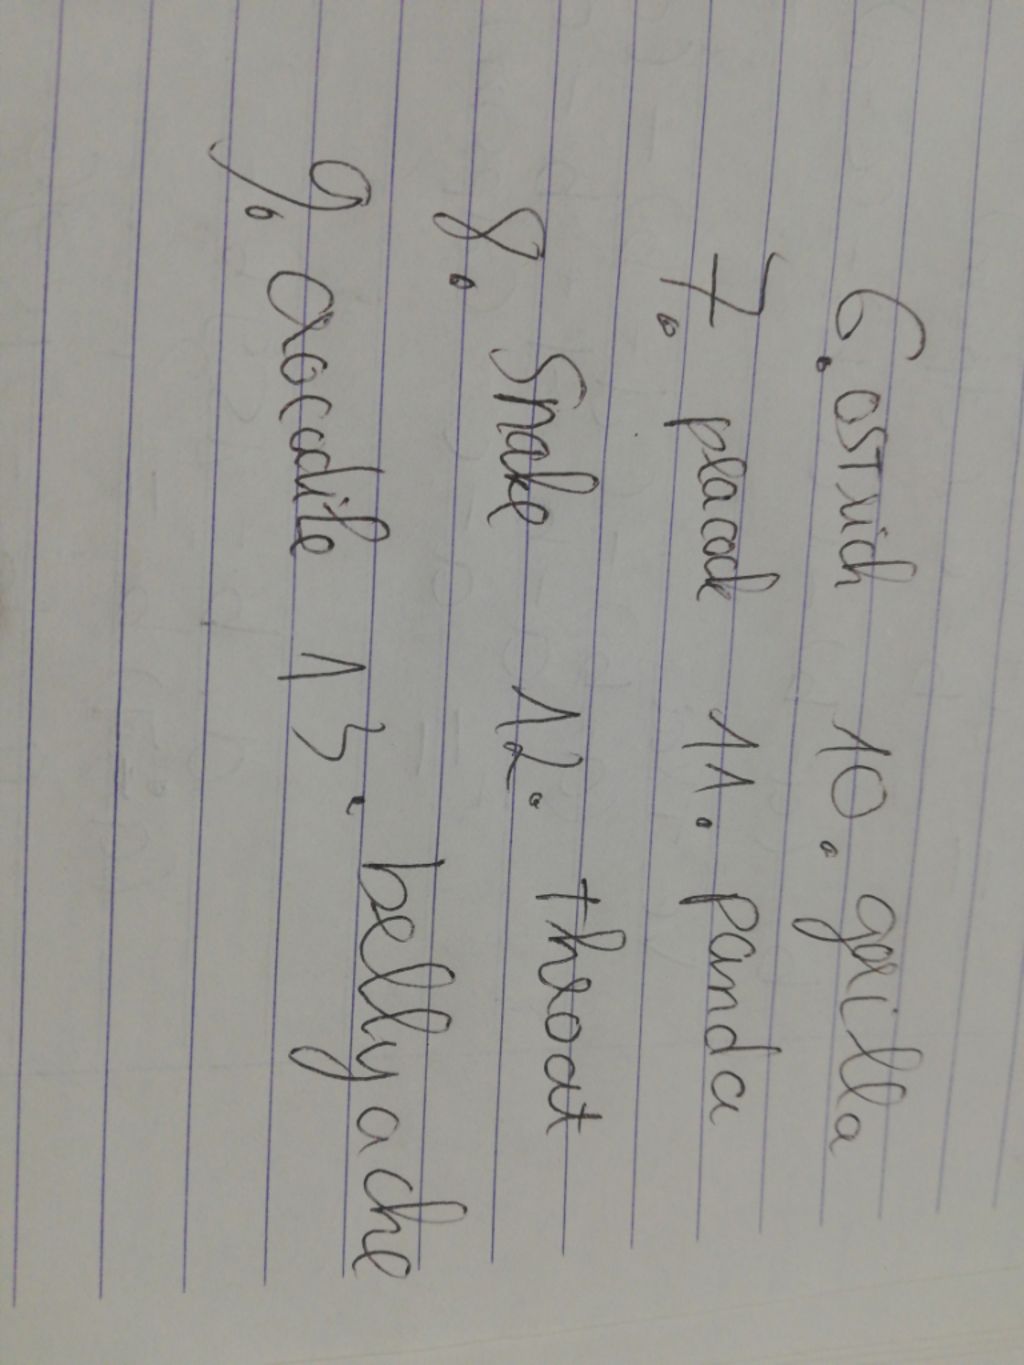 6. ostrich 10. gorilla
7. placock 11. panda
8. Snake 12. throat
9. crocodile 13. belly ache